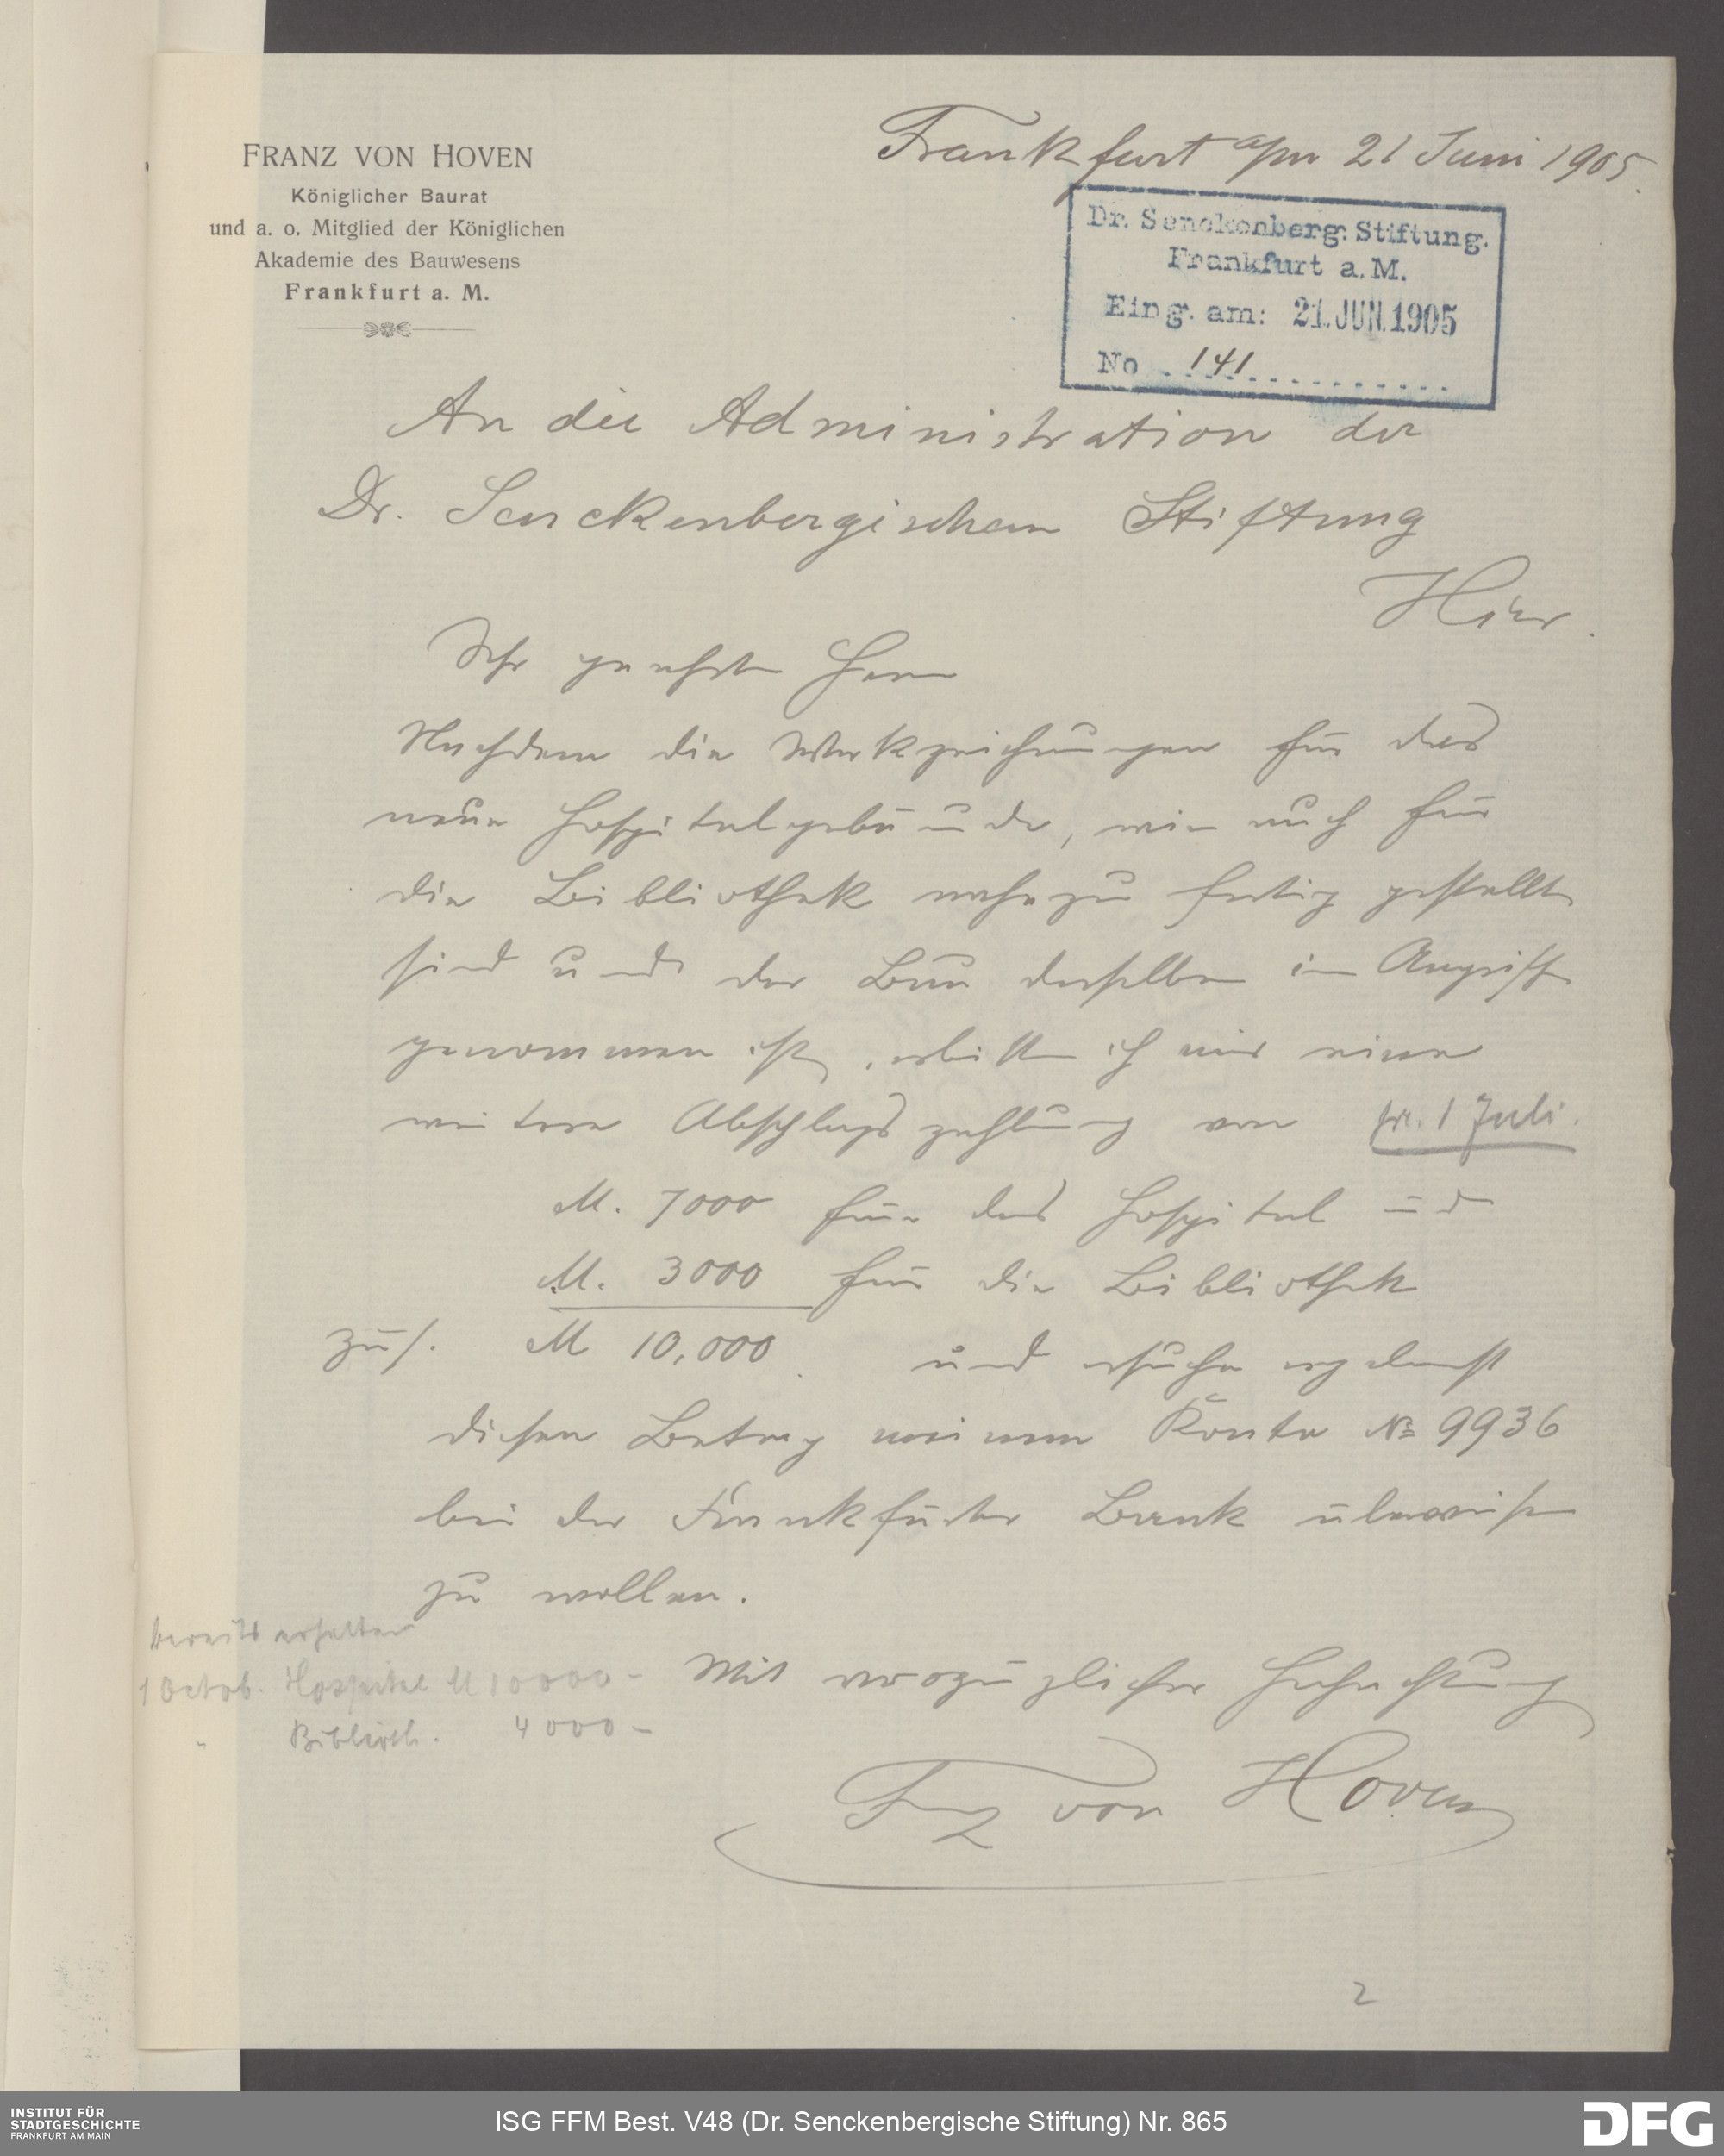 FRANZ VON HOVEN
Königlicher Baurat
und a. o. Mitglied der Königlichen
Akademie des Bauwesens
Frankfurt a. M.
Frankfurt a/m 21 Juni 1905.
Dr. Senckenberg. Stiftung.
Frankfurt a. M.
Eing. am: 21. JUN. 1905
No 141
An die Administration der
Dr. Senckenbergischen Stiftung
Hier.
Sehr geehrte Herrn
Nachdem die Werkzeichnungen für das
neue Hospitalgebäude, wie auch für
die Bibliothek nahezu fertig gestellt
sind und der Bau derselben in Angriff
genommen ist, erbitte ich mir eine
weitere Abschlagszahlung von pr. 1 Juli.
M. 7000 für das Hospital und
M. 3000 für die Bibliothek
zus. M 10,000 und ersuche ergebenst
diesen Betrag meinem Konto № 9936
bei der Frankfurter Bank überweisen
zu wollen.
bereits erhalten
1 Octob. Hospital M 10000 -
" Biblioth. 4000 -
Mit vorzüglicher Hochachtung
Frz von Hoven
2
INSTITUT FÜR
STADTGESCHICHTE
FRANKFURT AM MAIN
ISG FFM Best. V48 (Dr. Senckenbergische Stiftung) Nr. 865
DFG